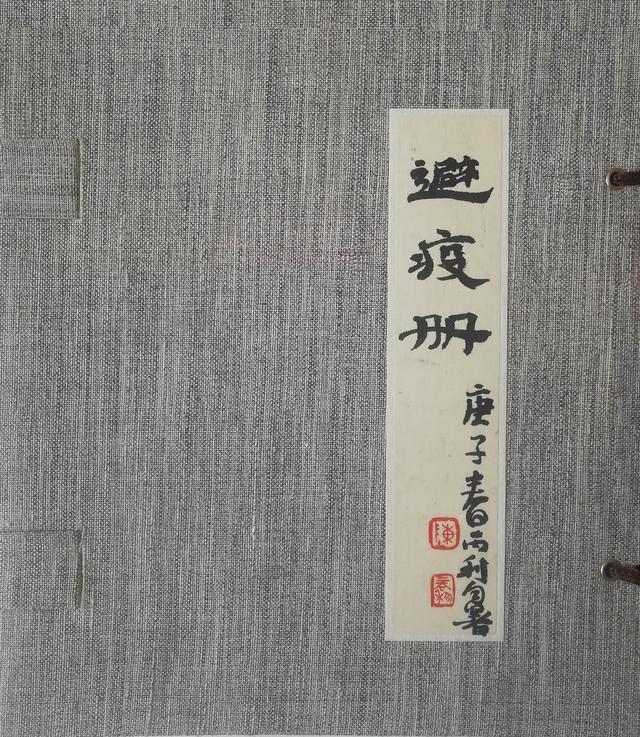 避疫册
庚子春丙利自署
陳